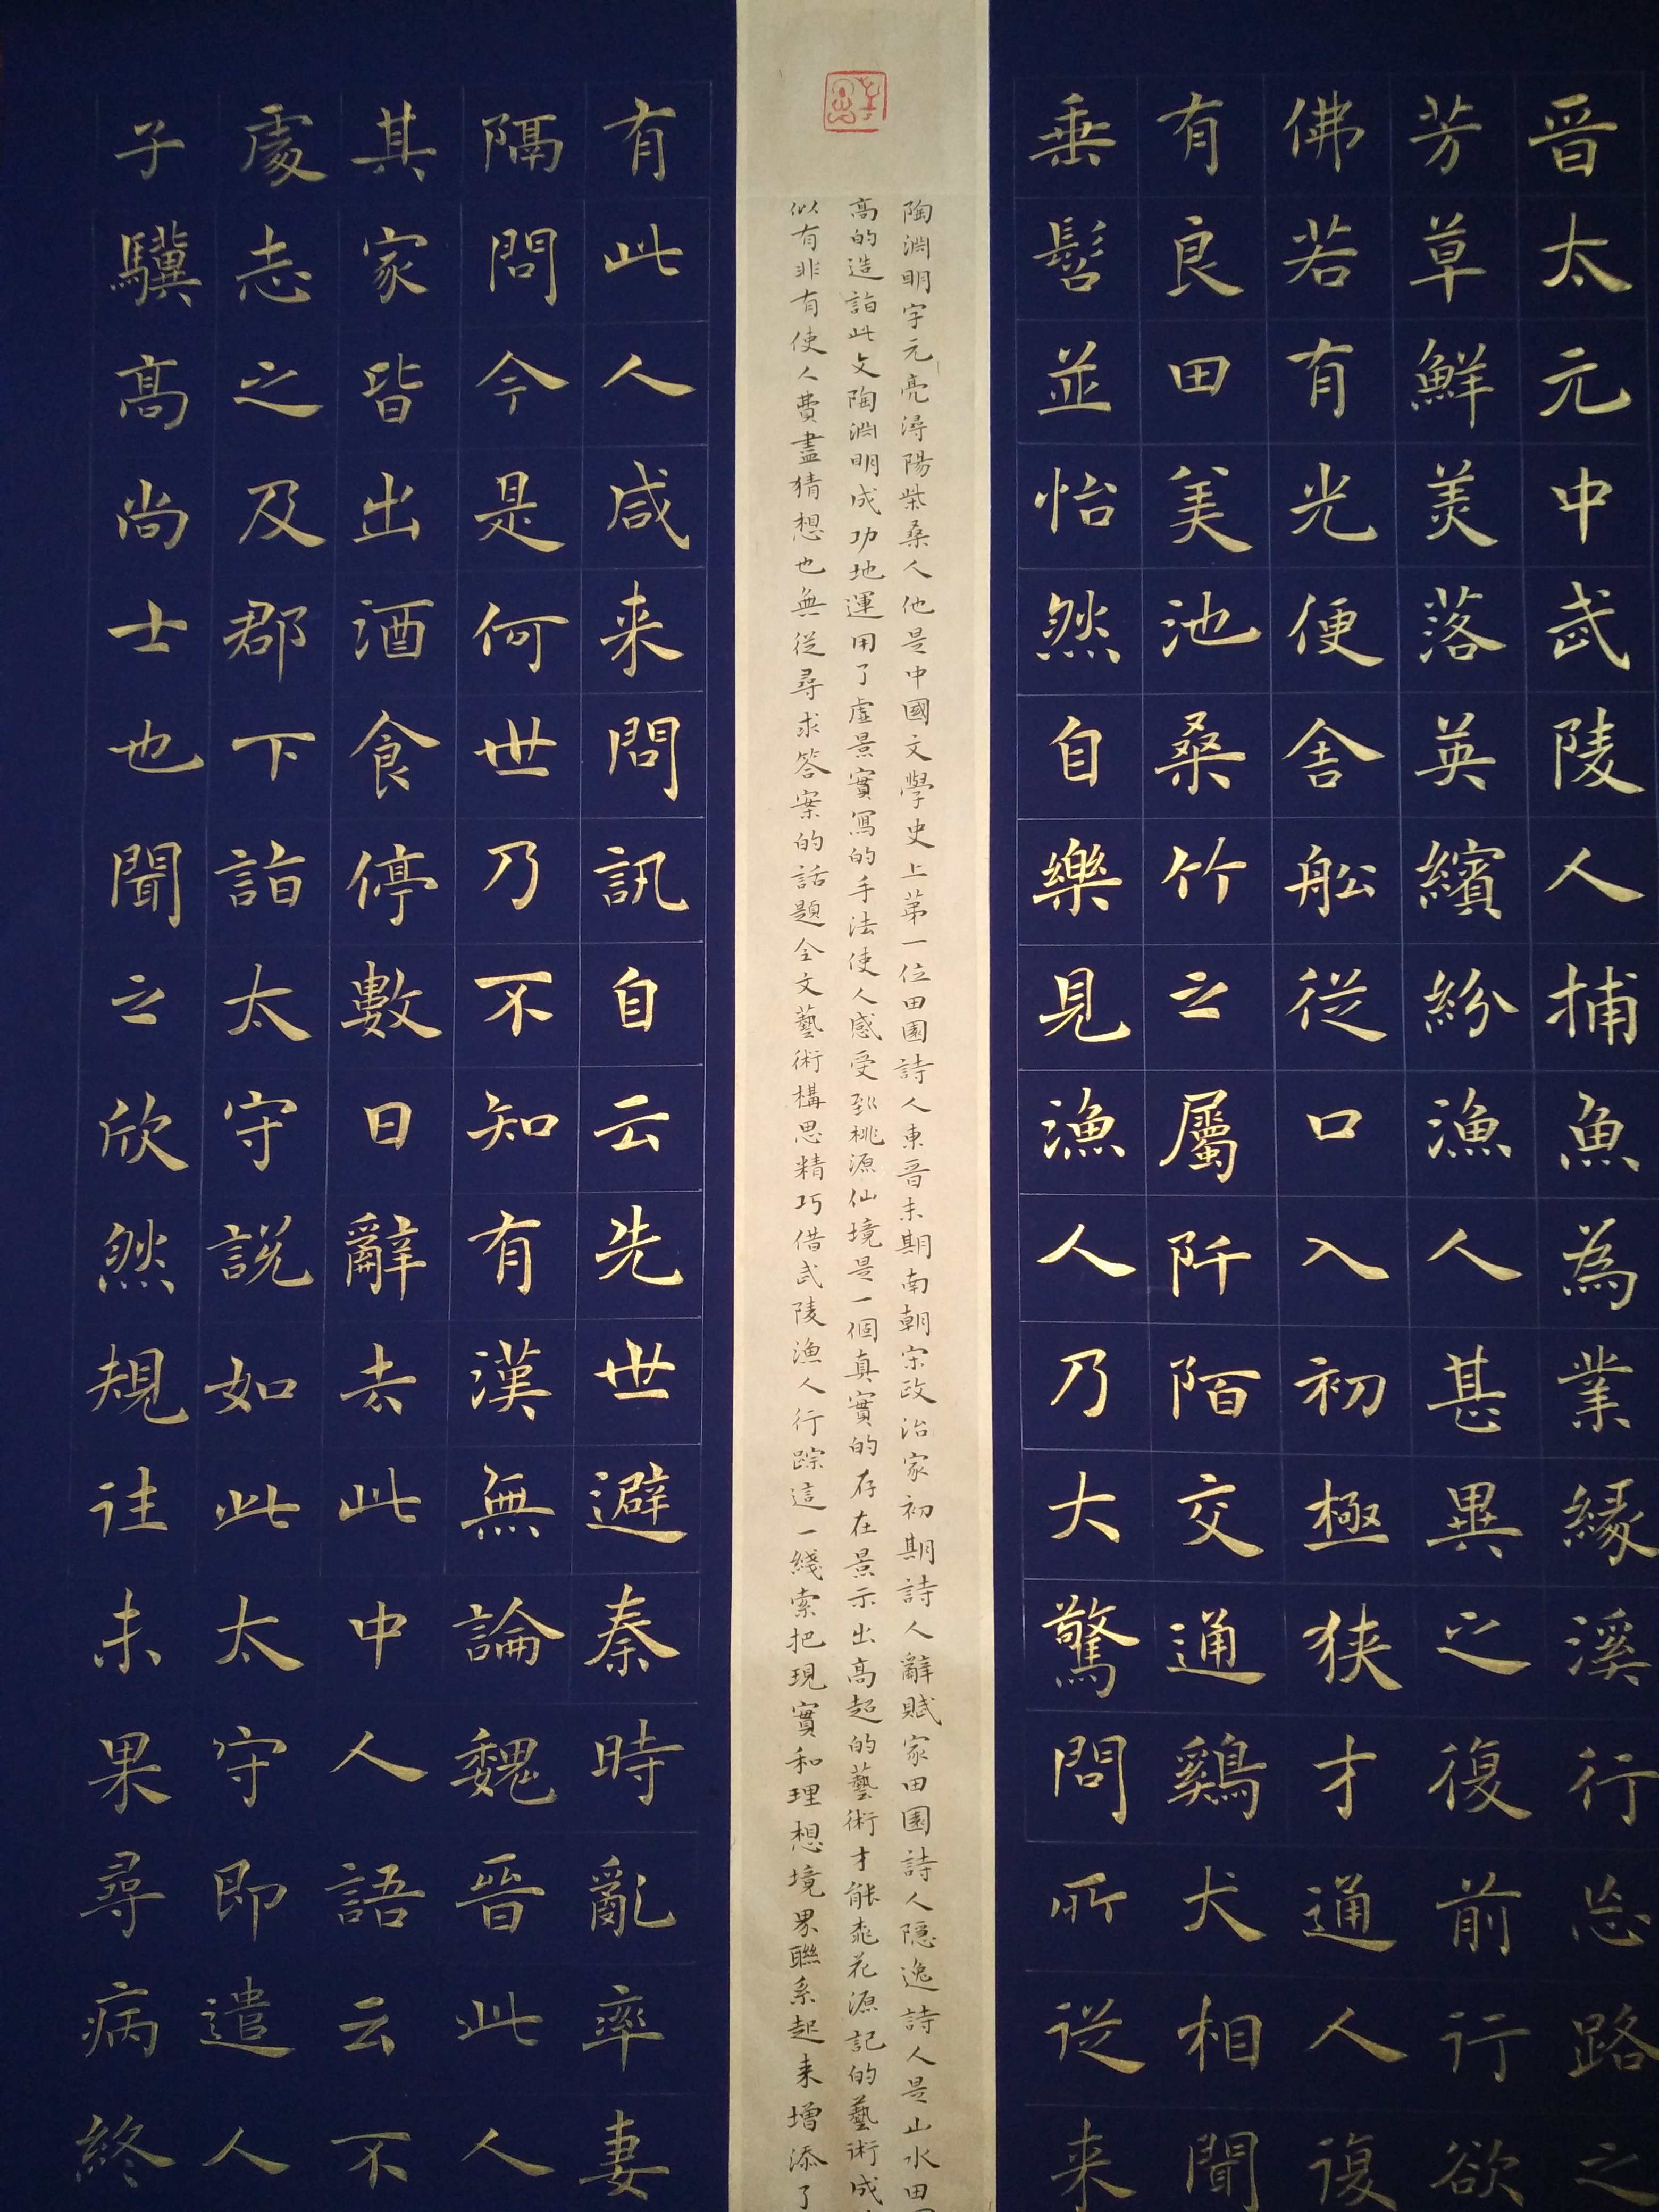 晋太元中武陵人捕魚為業緣溪行忘路之
芳草鮮美落英繽紛漁人甚異之復前行欲
佛若有光便舎舩從口入初極狭才通人復
有良田美池桑竹之屬阡陌交通鷄犬相聞
垂髫並怡然自樂見漁人乃大驚問所從来
陶淵明字元亮潯陽柴桑人他是中國文學史上第一位田園詩人東晋末期南朝宋政治家初期詩人辭賦家田園詩人隱逸詩人是山水田
高的造詣此文陶淵明成功地運用了虛景實寫的手法使人感受到桃源仙境是一個真實的存在景示出高超的藝術才能桃花源記的藝術成
似有非有使人費盡猜想也無從尋求答案的話題全文藝術構思精巧借武陵漁人行踪這一綫索把現實和理想境界聯系起来增添了
有此人咸来問訊自云先世避秦時亂率妻
隔問今是何世乃不知有漢無論魏晋此人
其家皆出酒食停數日辭去此中人語云不
處志之及郡下詣太守説如此太守即遣人
子驥高尚士也聞之欣然規往未果尋病終